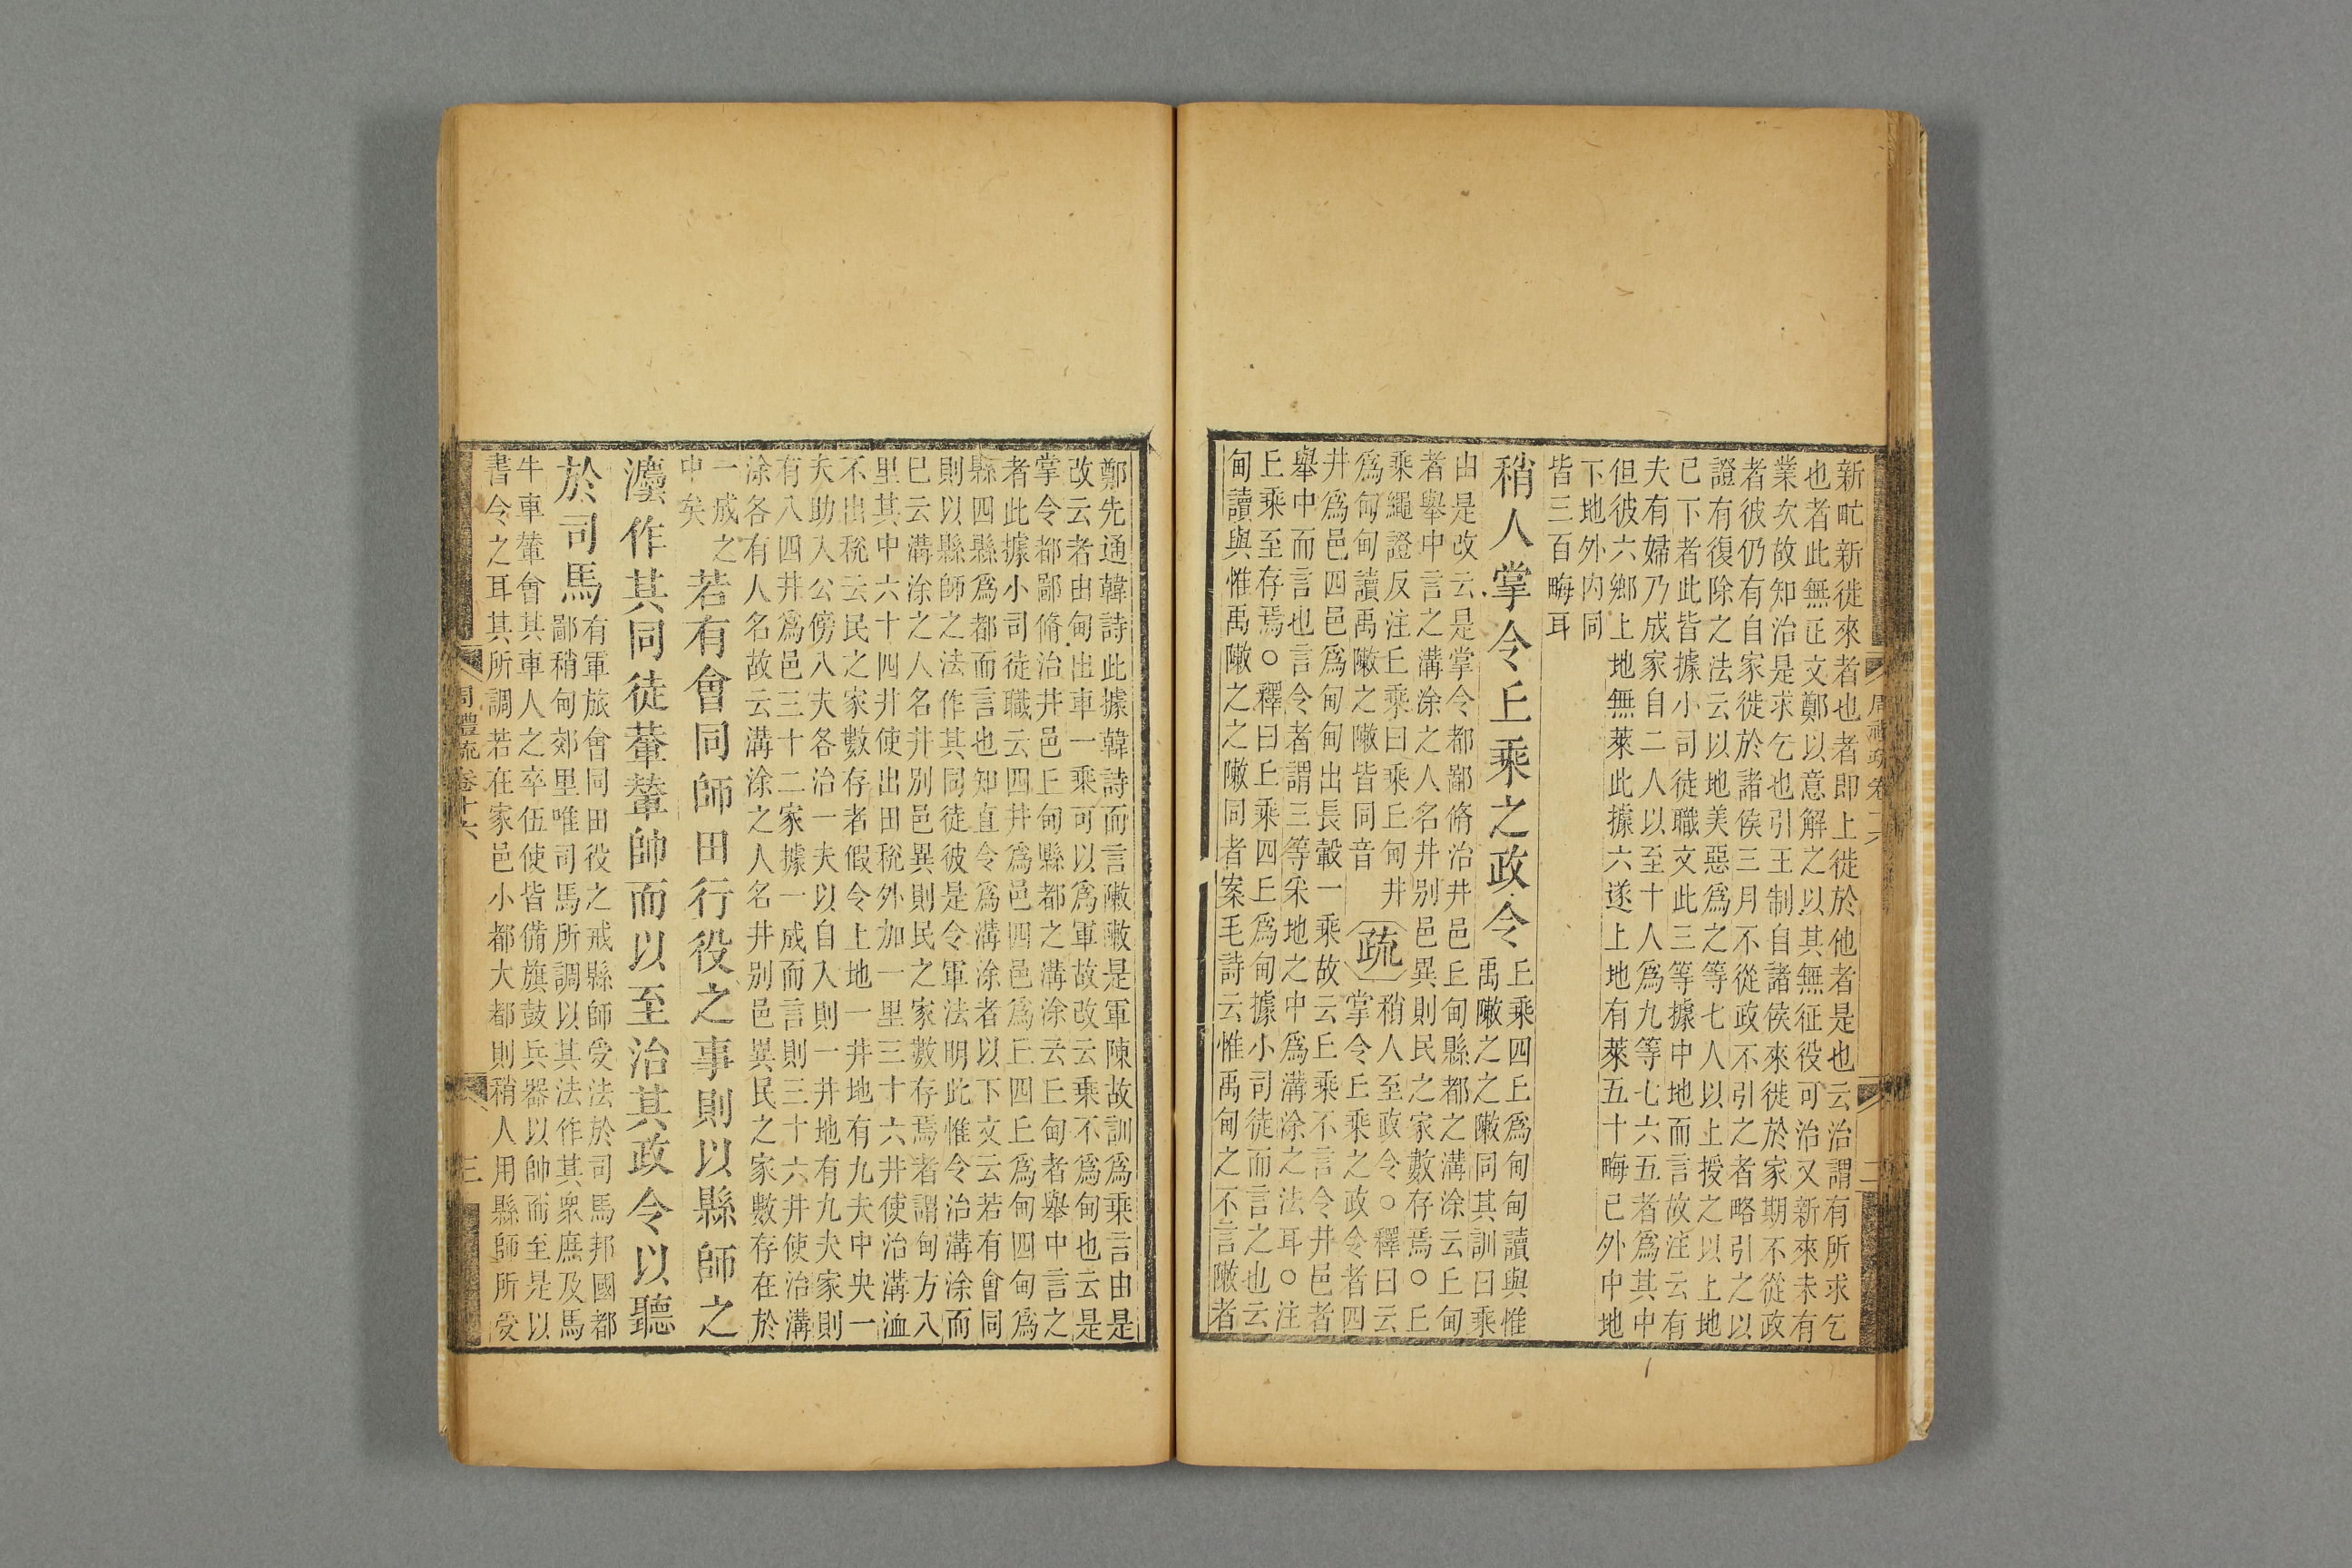 新甿新徙來者也者即上徙於他者是也云治謂有所求乞
也者此無正文鄭以意解之以其無征役可治又新來未有
業次故知治是求乞也引王制自諸侯來徙於家期不從政
者彼仍有自家徙於諸侯三月不從政不引之者略引之以
證有復除之法云以地美惡爲之等七人以上授之以上地
已下者此皆據小司徒職文此三等據中地而言故注云有
夫有婦乃成家自二人以至十人爲九等七六五者爲其中
但彼六鄉上地無萊此據六遂上地有萊五十畮已外中地
下地外内同
皆三百畮耳
稍人掌令丘乘之政令
丘乘四丘爲甸甸讀與惟
禹敶之之敶同其訓曰乘
由是改云是掌令都鄙脩治井邑丘甸縣都之溝涂云丘甸
者舉中言之溝涂之人名井别邑異則民之家數存焉○丘
乘繩證反注丘乘曰乘丘甸井
爲甸甸讀禹敶之敶皆同音
疏
稍人至政令○釋曰云
掌令丘乘之政令者四
井爲邑四邑爲甸甸出長轂一乘故云丘乘不言令井邑者
舉中而言也言令者謂三等采地之中爲溝涂之法耳○注
丘乘至存焉○釋曰丘乘四丘爲甸據小司徒而言之也云
甸讀與惟禹敶之之敶同者案毛詩云惟禹甸之不言敶者
周禮疏卷十六
二
鄭先通韓詩此據韓詩而言敶敶是軍陳故訓爲乘言由是
改云者由甸出車一乘可以爲軍故改云乘不爲甸也云是
掌令都鄙脩治井邑丘甸縣都之溝涂云丘甸者舉中言之
者此據小司徒職云四井爲邑四邑爲丘四丘爲甸四甸爲
縣四縣爲都而言也知直令爲溝涂者以下文云若有會同
則以縣師之法作其同徒彼是令軍法明此惟令治溝涂而
已云溝涂之人名井别邑異則民之家數存焉者謂甸方八
里其中六十四井使出田稅外加一里三十六井使治溝洫
不出稅云民之家數存者假令上地一井地有九夫中央一
夫助入公傍八夫各治一夫以自入則一井地有九夫家則
有八四井爲邑三十二家據一成而言則三十六井使治溝
涂各有人名故云溝涂之人名井别邑異民之家數存在於
一成之
中矣
若有會同師田行役之事則以縣師之
灋作其同徒輂輦帥而以至治其政令以聽
於司馬
有軍旅會同田役之戒縣師受法於司馬邦國都
鄙稍甸郊里唯司馬所調以其法作其衆庶及馬
牛車輦會其車人之卒伍使皆備旗鼓兵器以帥而至是以
書令之耳其所調若在家邑小都大都則稍人用縣師所受
周禮疏卷十六
三